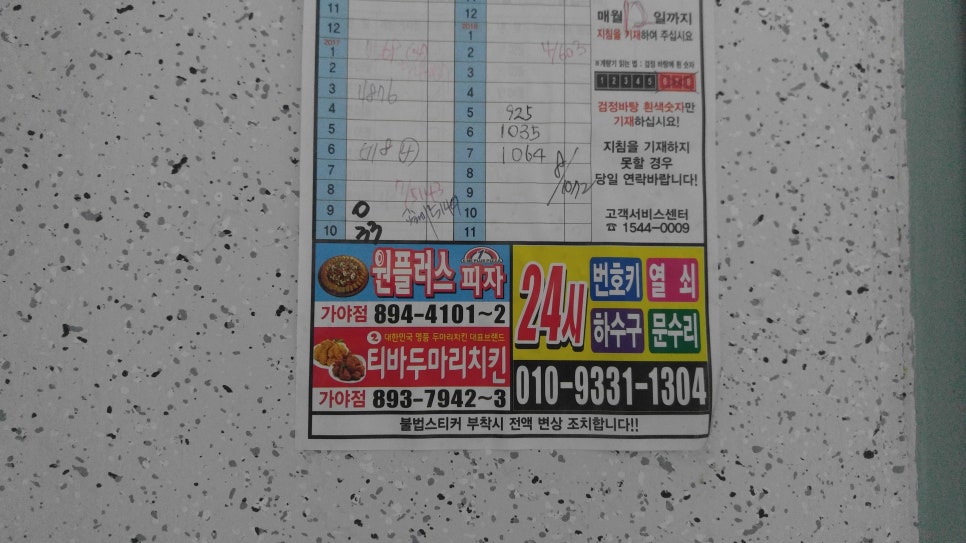 11
12
2017
1
2
3 11876
4
5
6
7
8
9 0
10
12
2018
1
2 4/603
3
4
5 925
6 1035
7 1064
8 8/1072
9
10
11
매월 일까지
지침을 기재하여 주십시요
※계량기 읽는 법 : 검정 바탕에 흰 숫자
1 2 3 4 5 6 7 8
검정바탕 흰색숫자만
기재하십시요!
지침을 기재하지
못할 경우
당일 연락바랍니다!
고객서비스센터
☎ 1544-0009
원플러스 피자
가야점 894-4101~2
대한민국 명품 두마리치킨 대표브랜드
티바두마리치킨
가야점 893-7942~3
24시
번호키 열쇠
하수구 문수리
010-9331-1304
불법스티커 부착시 전액 변상 조치합니다!!